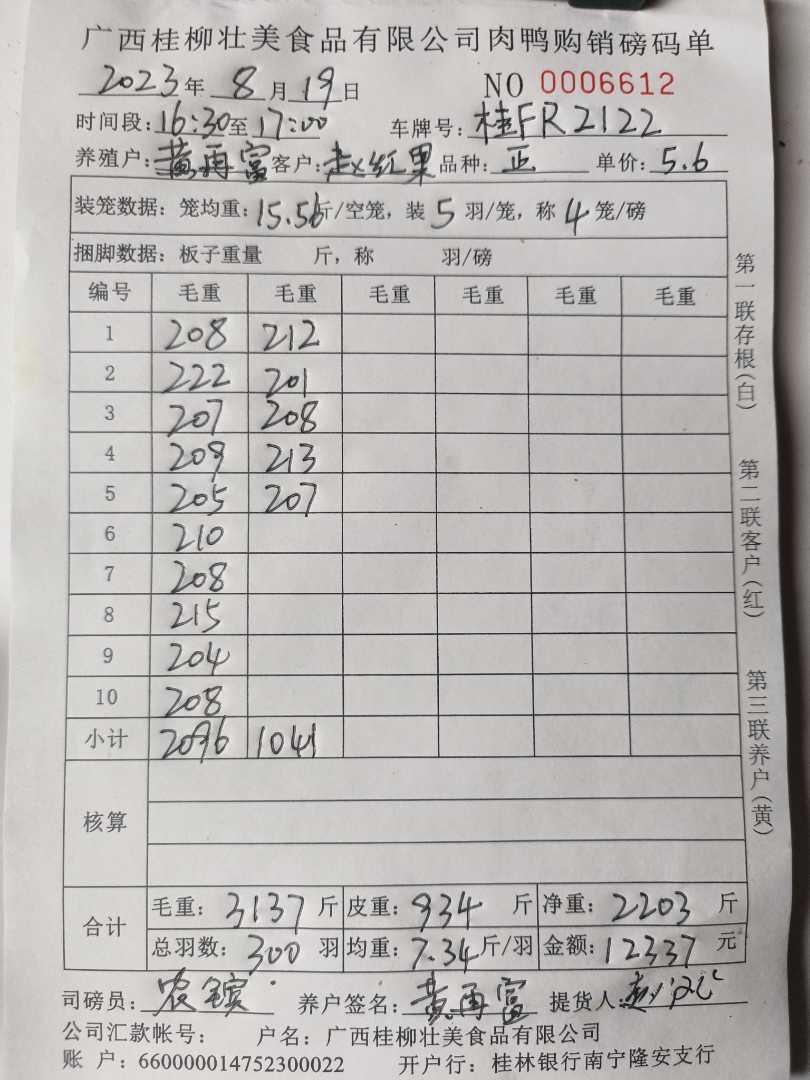 广西桂柳壮美食品有限公司肉鸭购销磅码单
2023年 8月19日 NO 0006612
时间段:16:30至17:00 车牌号:桂FR2122
养殖户:黄再富 客户:赵红果 品种:正 单价:5.6
装笼数据:笼均重:15.56斤/空笼,装5羽/笼,称4笼/磅
捆脚数据:板子重量 斤,称 羽/磅
编号 毛重 毛重 毛重 毛重 毛重 毛重
1 208 212
2 222 201
3 207 208
4 209 213
5 205 207
6 210
7 208
8 215
9 204
10 208
小计 2096 1041
核算
合计 毛重:3137斤 皮重:934斤 净重:2203斤
总羽数:300羽 均重:7.34斤/羽 金额:12337元
司磅员: 养户签名:黄再富 提货人:
公司汇款帐号: 户名:广西桂柳壮美食品有限公司
账 户:660000014752300022 开户行:桂林银行南宁隆安支行
第一联存根(白)
第二联客户(红)
第三联养户(黄)